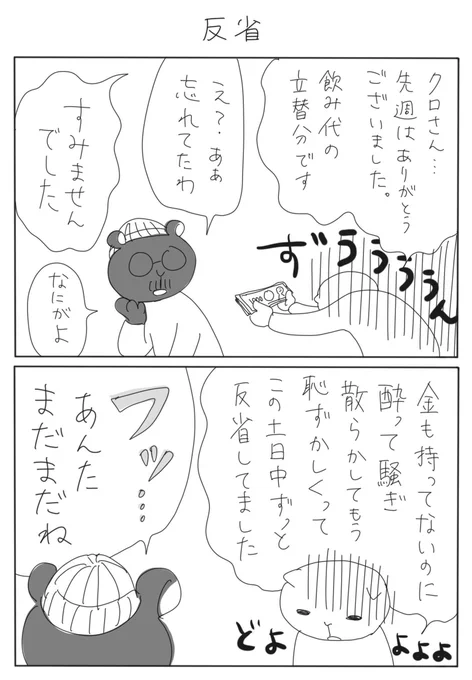 反省
クロさん…
先週はありがとう
ございました。
飲み代の
立替分です
ずぅぅぅぅん
え?あぁ
忘れてたわ
すみません
でした
なにがよ
金も持ってないのに
酔って騒ぎ
散らかしてもう
恥ずかしくって
この土日中ずっと
反省してました
どよ
よよよ
フッ…
あんた
まだまだね